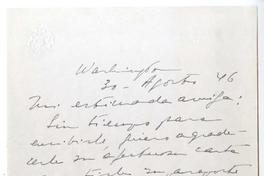 Washington
30 - Agosto 46
Mi estimada amiga:
Sin tiempo para
escribirle quiero agrade-
cerle su afectuosa carta
su